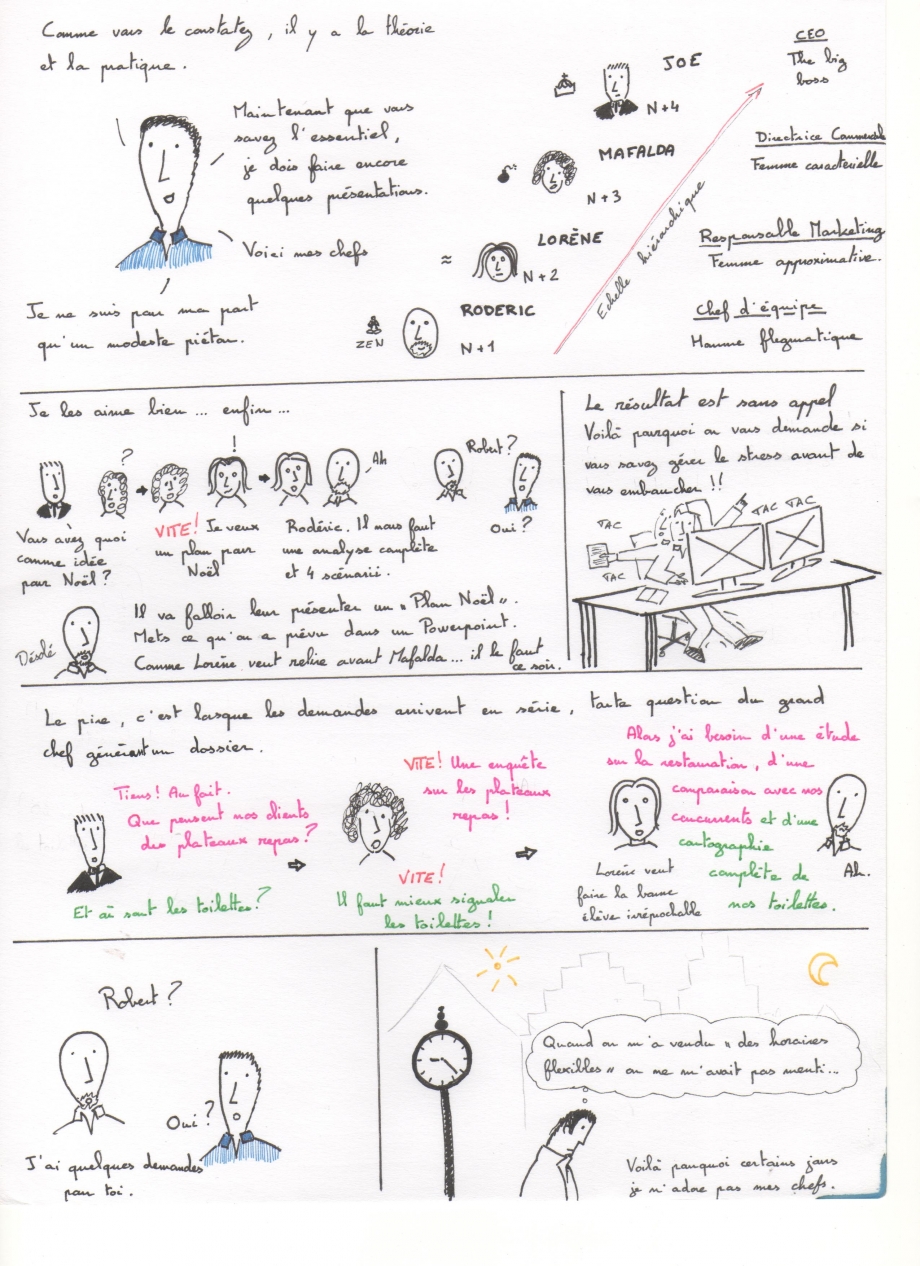 Comme vous le constatez, il y a la théorie
et la pratique.
Maintenant que vous
savez l'essentiel,
je dois faire encore
quelques présentations.
Voici mes chefs
Je ne suis pour ma part
qu'un modeste piéton.
JOE
N+4
CEO
The big
boss
MAFALDA
N+3
Directrice Commerciale
Femme caractérielle
≈
LORÈNE
N+2
Responsable Marketing
Femme approximative.
ZEN
RODERIC
N+1
Chef d'équipe
Homme flegmatique
Echelle hiérarchique
Je les aime bien... enfin...
?
!
Ah
Robert?
Vous avez quoi
comme idée
pour Noël?
VITE! Je veux
un plan pour
Noël
Rodéric. Il nous faut
une analyse complète
et 4 scénarii.
Oui?
Désolé
Il va falloir leur présenter un "Plan Noël".
Mets ce qu'on a prévu dans un Powerpoint.
Comme Lorène veut relire avant Mafalda... il le faut
ce soir.
Le résultat est sans appel
Voilà pourquoi on vous demande si
vous savez gérer le stress avant de
vous embaucher!!
TAC
TAC TAC
TAC
Le pire, c'est lorsque les demandes arrivent en série, toute question du grand
chef générant un dossier.
Tiens! Au fait.
Que pensent nos clients
des plateaux repas?
Et où sont les toilettes?
VITE! Une enquête
sur les plateaux
repas!
VITE!
Il faut mieux signaler
les toilettes!
Alors j'ai besoin d'une étude
sur la restauration, d'une
comparaison avec nos
concurrents et d'une
cartographie
complète de
nos toilettes.
Lorène veut
faire la bonne
élève irréprochable
Ah.
Robert?
Oui?
J'ai quelques demandes
pour toi.
Quand on m'a vendu "des horaires
flexibles" on ne m'avait pas menti...
Voilà pourquoi certains jours
je n'adore pas mes chefs.